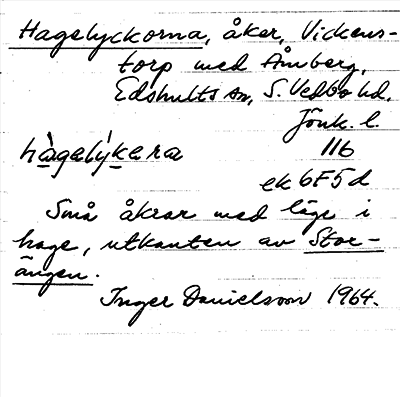 Hagelyckorna, åker, Vickens-
torp med Åmberg,
Edshults sn, S. Vedbo hd,
Jönk. l.
hàgelýkera 116
ek 6F5d
Små åkrar med läge i
hage, utkanten av Stor-
ängen.
Inger Danielsson 1964.